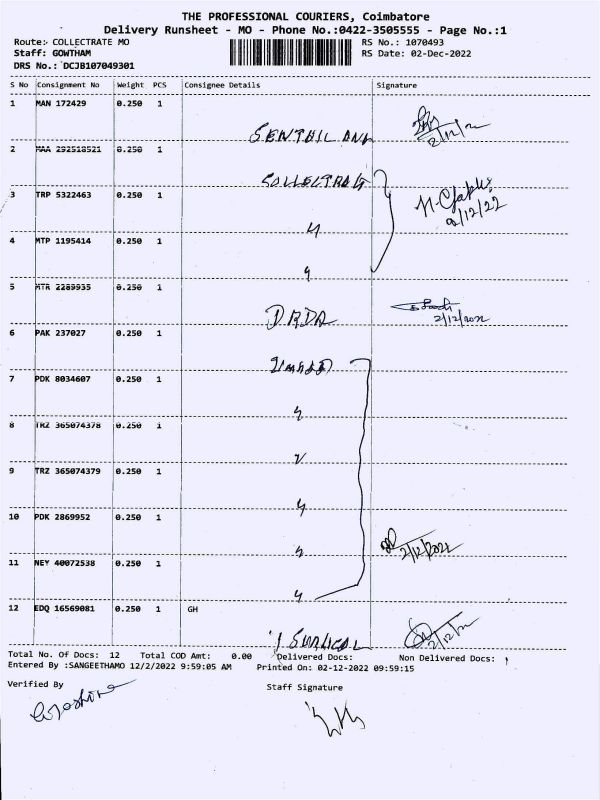 THE PROFESSIONAL COURIERS, Coimbatore
Delivery Runsheet - MO - Phone No.:0422-3505555 - Page No.:1
Route:- COLLECTRATE MO RS No.: 1070493
Staff: GOWTHAM RS Date: 02-Dec-2022
DRS No.: DCJB107049301
S No Consignment No Weight PCS Consignee Details Signature
1 MAN 172429 0.250 1
SENTHIL ANN 2/12/22
2 MAA 292518521 0.250 1
COLLECTRAT
3 TRP 5322463 0.250 1
2/12/22
4 MTP 1195414 0.250 1
5 MTR 2289935 0.250 1
DRDA 2/12/2022
6 PAK 237027 0.250 1
7 PDK 8034607 0.250 1
8 TRZ 365074378 0.250 1
9 TRZ 365074379 0.250 1
10 PDK 2869952 0.250 1
2/12/2022
11 NEY 40072538 0.250 1
12 EDQ 16569081 0.250 1 GH
SURGICAL 2/12/22
Total No. Of Docs: 12 Total COD Amt: 0.00 Delivered Docs: Non Delivered Docs:
Entered By :SANGEETHAMO 12/2/2022 9:59:05 AM Printed On: 02-12-2022 09:59:15
Verified By Staff Signature